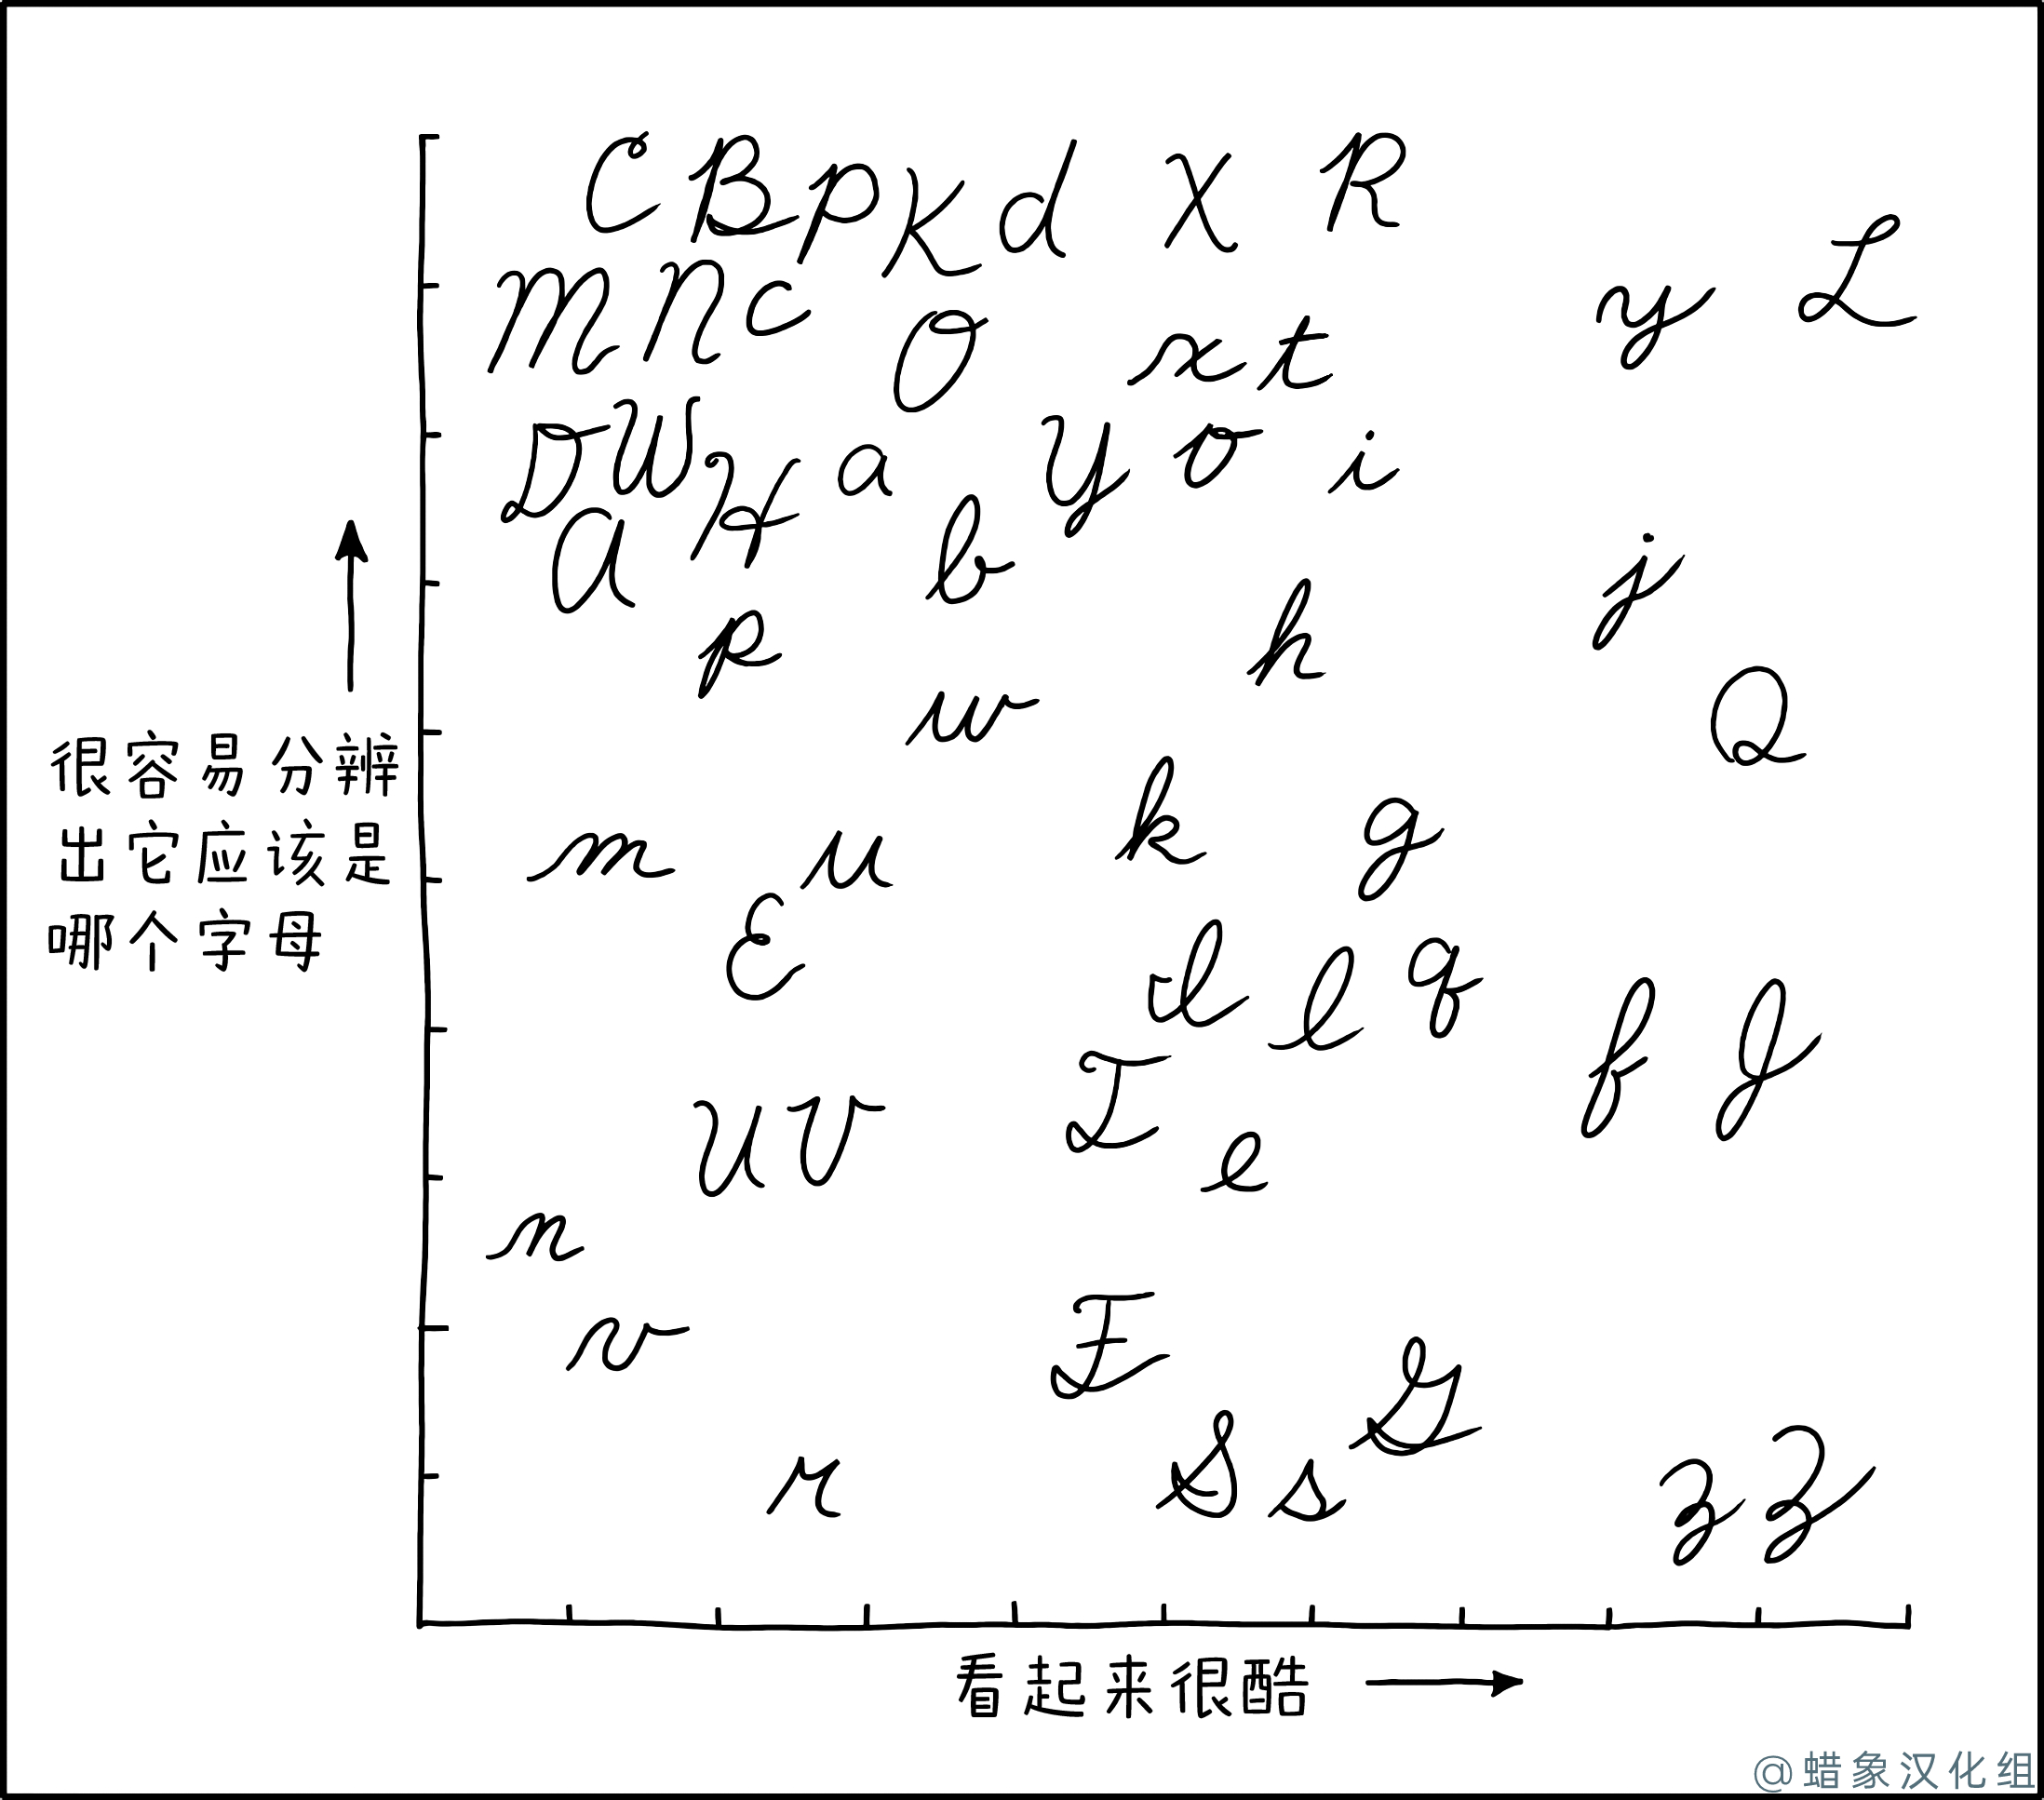 C B P K d X R
L
M N c O x t y
D W H a Y o i
A b j
p h
w Q
很容易分辨
出它应该是
哪个字母
m u k g
E I l q f J
T e
U V
n
v F
G
r S s z Z
看起来很酷
@蜡象汉化组